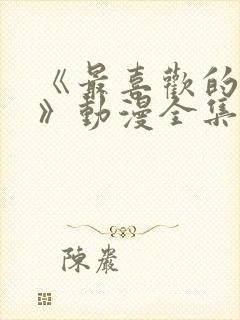 《最喜歡的
》動漫全集
陳嚴